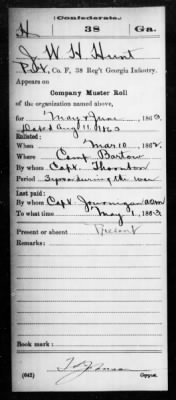 (Confederate.)
H 38 Ga.
J. W. H. Hunt
Pvt, Co. F, 38 Reg't Georgia Infantry.
Appears on
Company Muster Roll
of the organization named above,
for May & June, 1863.
Dated Aug 11, 1863
Enlisted:
When Mar 10, 1862.
Where Camp Bartow
By whom Capt. Thornton
Period 3 years or during the war
Last paid:
By whom Capt. Journigan
To what time May 1, 1863.
Present or absent Present
Remarks:
Book mark:
(642) Copyist.